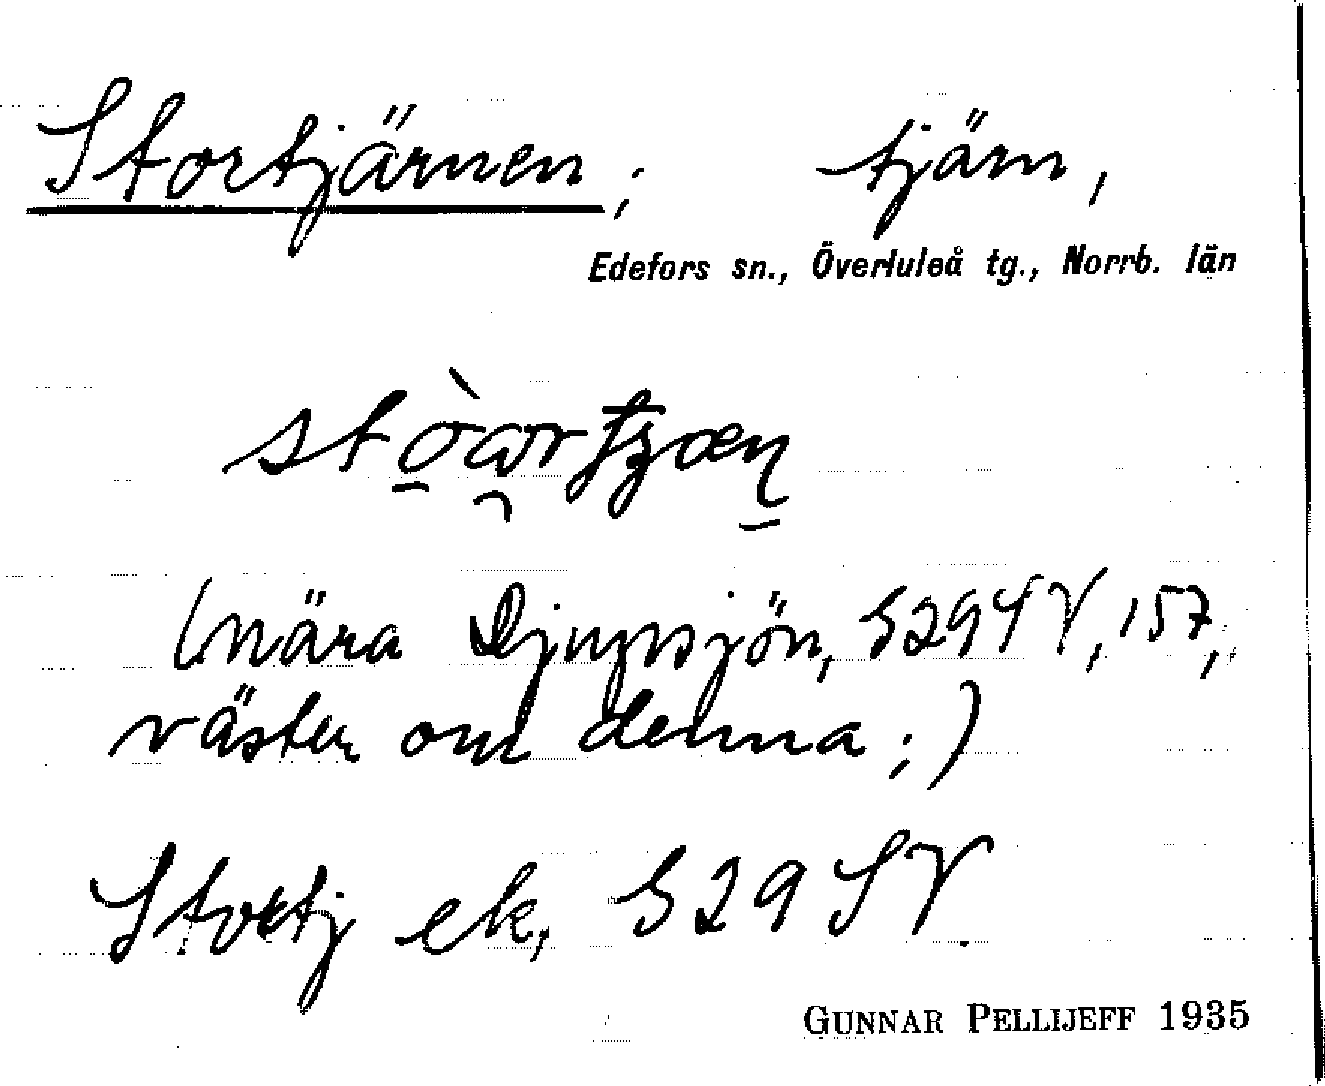 Stortjärnen; tjärn,
Edefors sn., Överluleå tg., Norrb. län
(nära Djupsjön, S29SV, 157,
väster om denna;)
Stortj ek, S29SV.
GUNNAR PELLIJEFF 1935